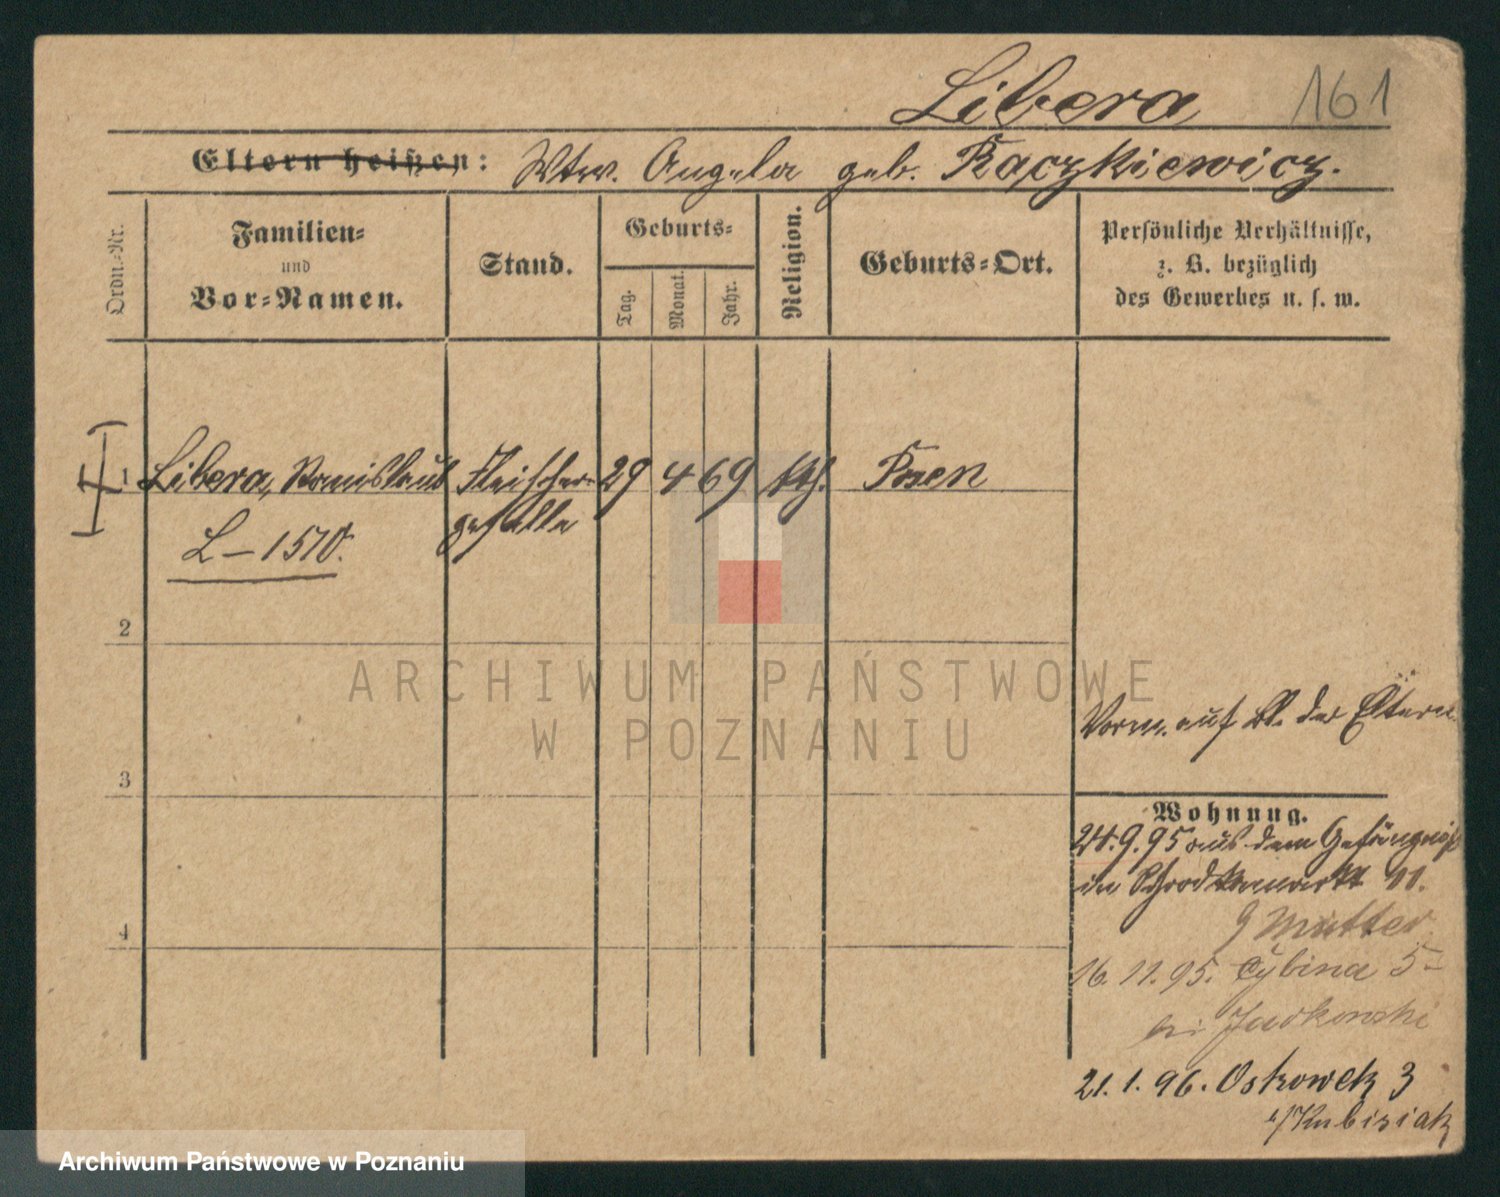 Libera 161
Eltern heißen: Wtw. Angela geb. Raczkiewicz.
Ordn.-Nr. Familien- und Vor-Namen. Stand. Geburts- Tag. Monat. Jahr. Religion. Geburts-Ort. Persönliche Verhältnisse, z. B. bezüglich des Gewerbes u. s. w.
1 Libera, Stanislaus Fleischer- 29 4 69 kth. Posen
L - 1510. geselle
2
3
4
Vorm. auf Bl. der Eltern
Wohnung.
24.9.95 aus dem Gefängniß
in Schrodkamarkt 11.
Mutter
16.11.95. Cybina 5
bei Jackowski
21.1.96. Ostrowek 3
b/Kubisiak
ARCHIWUM PAŃSTWOWE
W POZNANIU
Archiwum Państwowe w Poznaniu